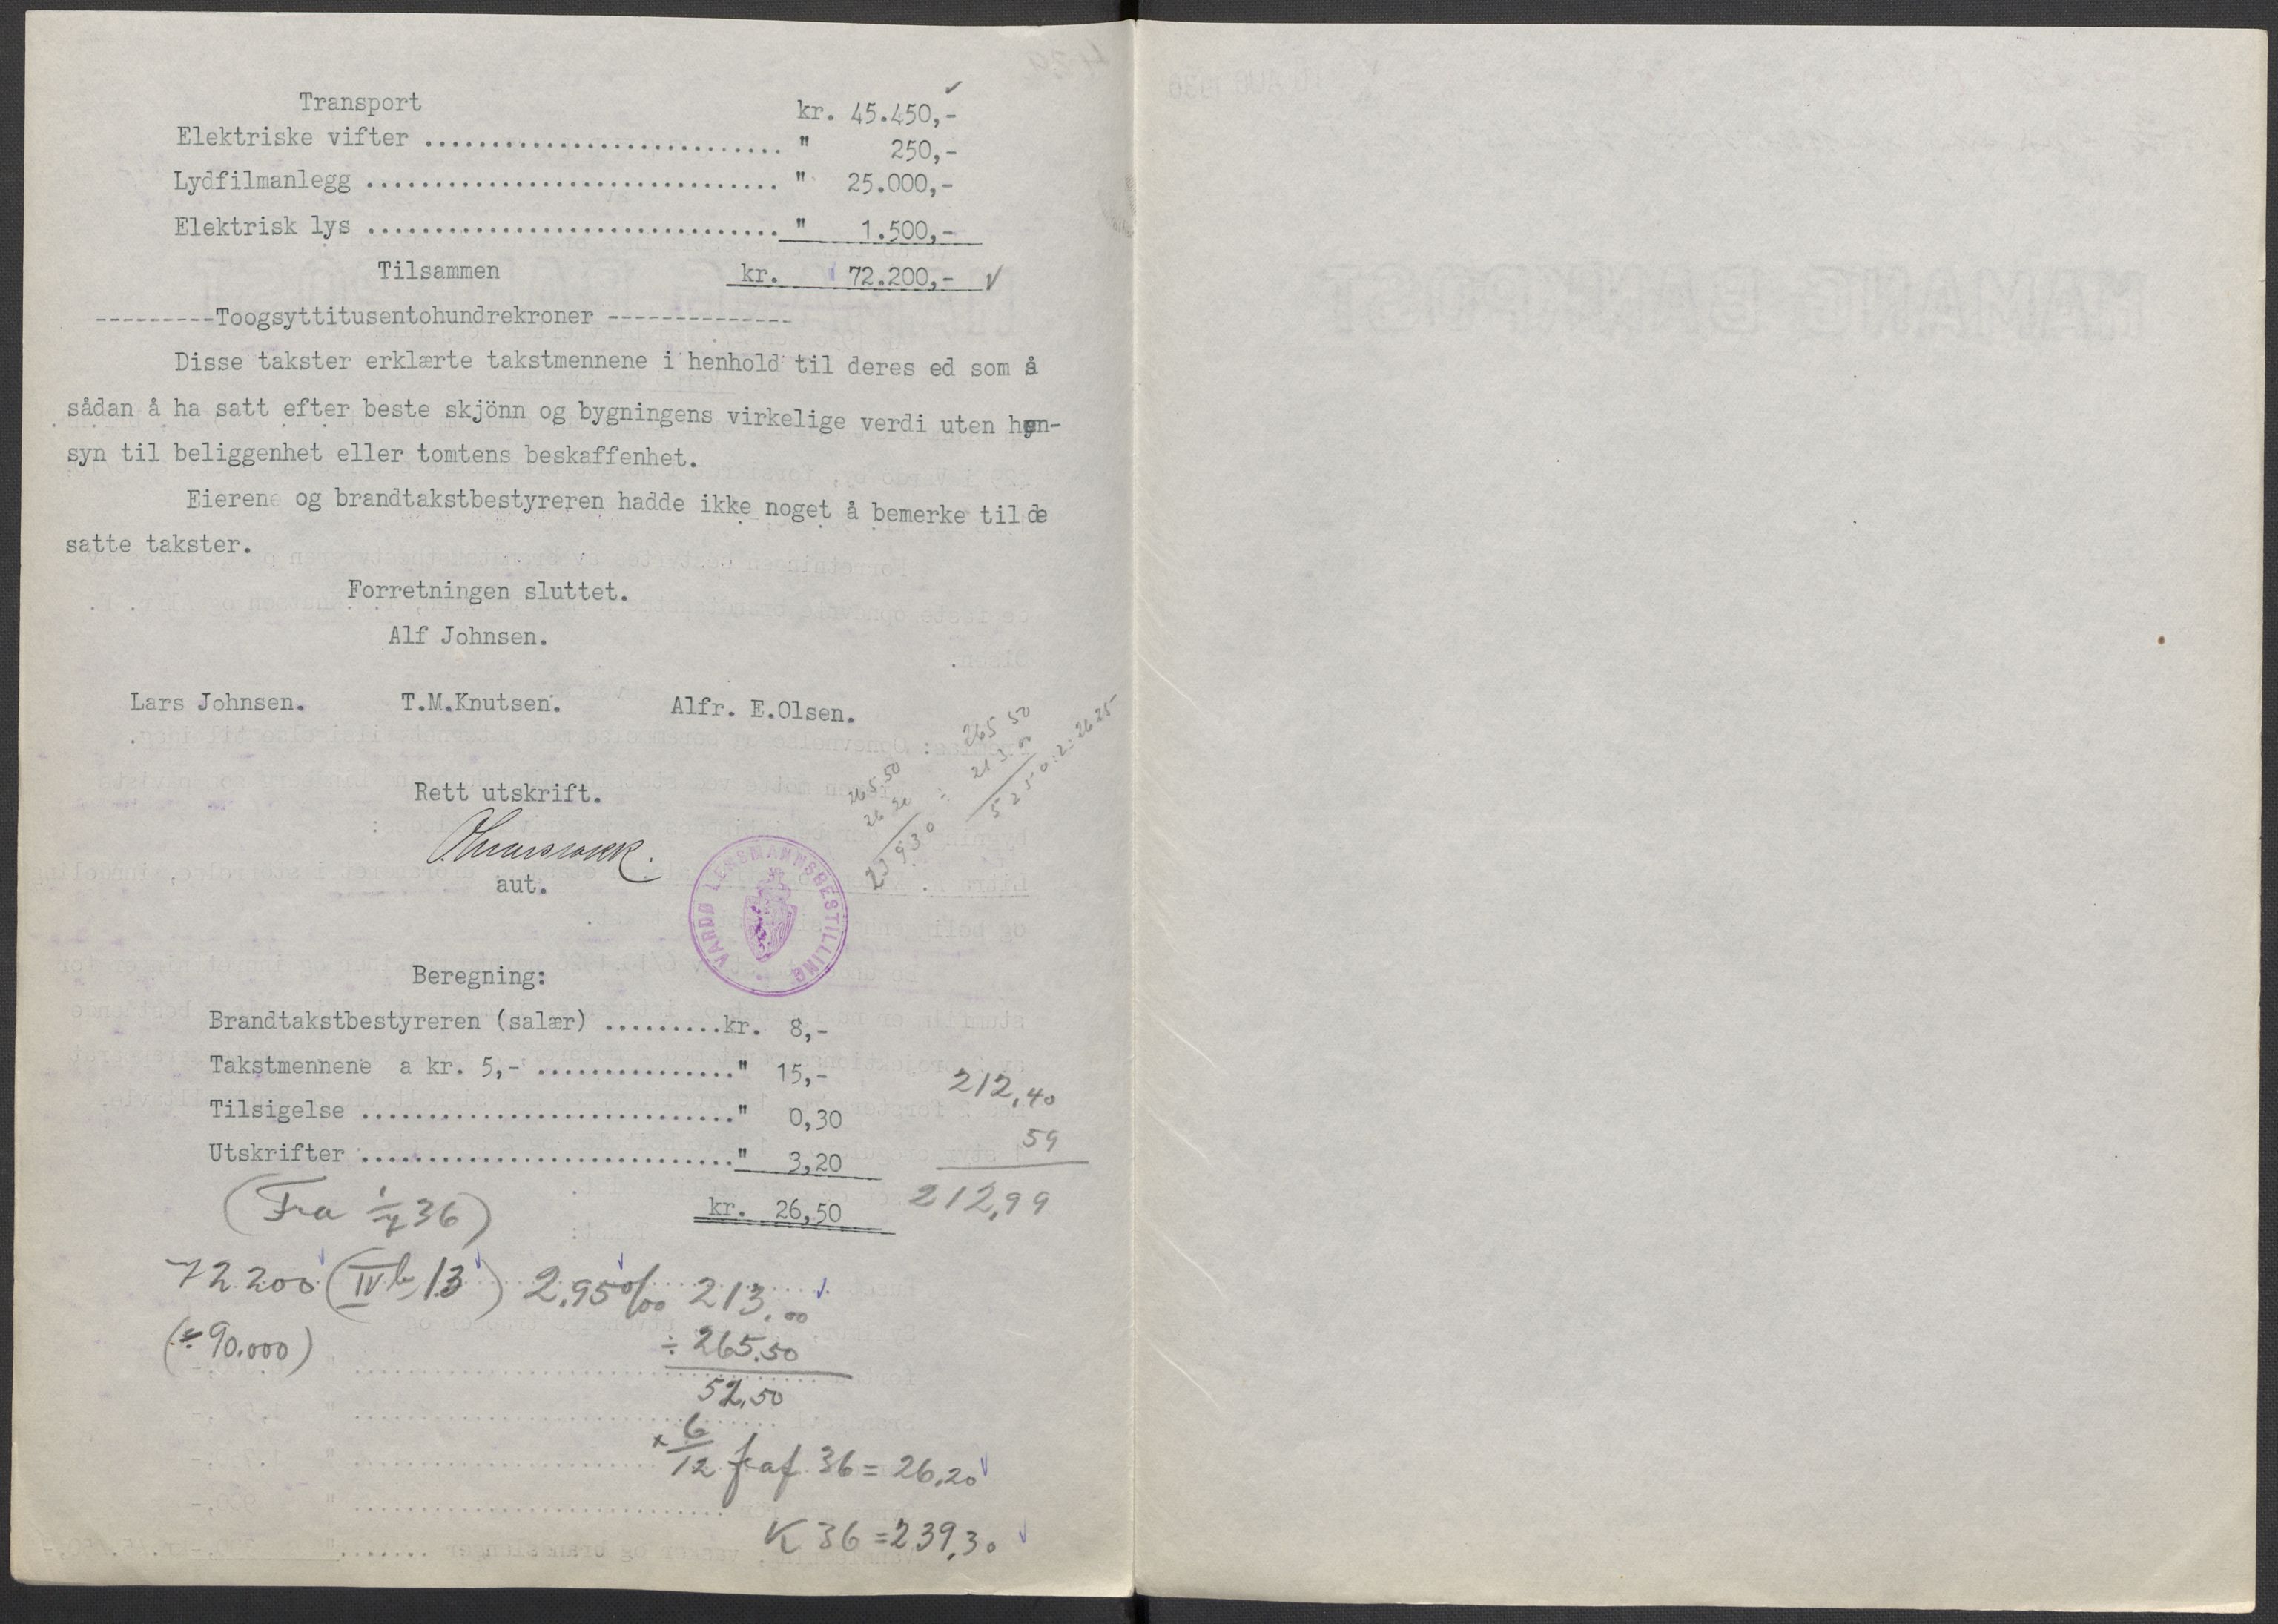 Transport kr. 45.450,-
Elektriske vifter ........................... " 250,-
Lydfilmanlegg ............................... " 25.000,-
Elektrisk lys ............................... " 1.500,-
Tilsammen kr. 72.200,-
---------Toogsyttitusentohundrekroner --------------
Disse takster erklærte takstmennene i henhold til deres ed som
sådan å ha satt efter beste skjönn og bygningens virkelige verdi uten hen-
syn til beliggenhet eller tomtens beskaffenhet.
Eierene og brandtakstbestyreren hadde ikke noget å bemerke til de
satte takster.
Forretningen sluttet.
Alf Johnsen.
Lars Johnsen. T.M.Knutsen. Alfr. E.Olsen.
265 50
213.00
5250:2=2625
265.50
26 20
239 30
Rett utskrift.
aut.
VARDØ LENSMANNSBESTILLING
Beregning:
Brandtakstbestyreren (salær) .........kr. 8,-
Takstmennene a kr. 5,- ..............." 15,-
Tilsigelse ............................" 0,30
Utskrifter ............................" 3,20
kr. 26,50
212,40
59
212,99
(Fra 1/7 36)
72.200 (IVb 13) 2.95 o/oo 213.00
(÷ 90.000) ÷ 265.50
52.50
x 6/12 f af 36 = 26.20
K 36 = 239,30